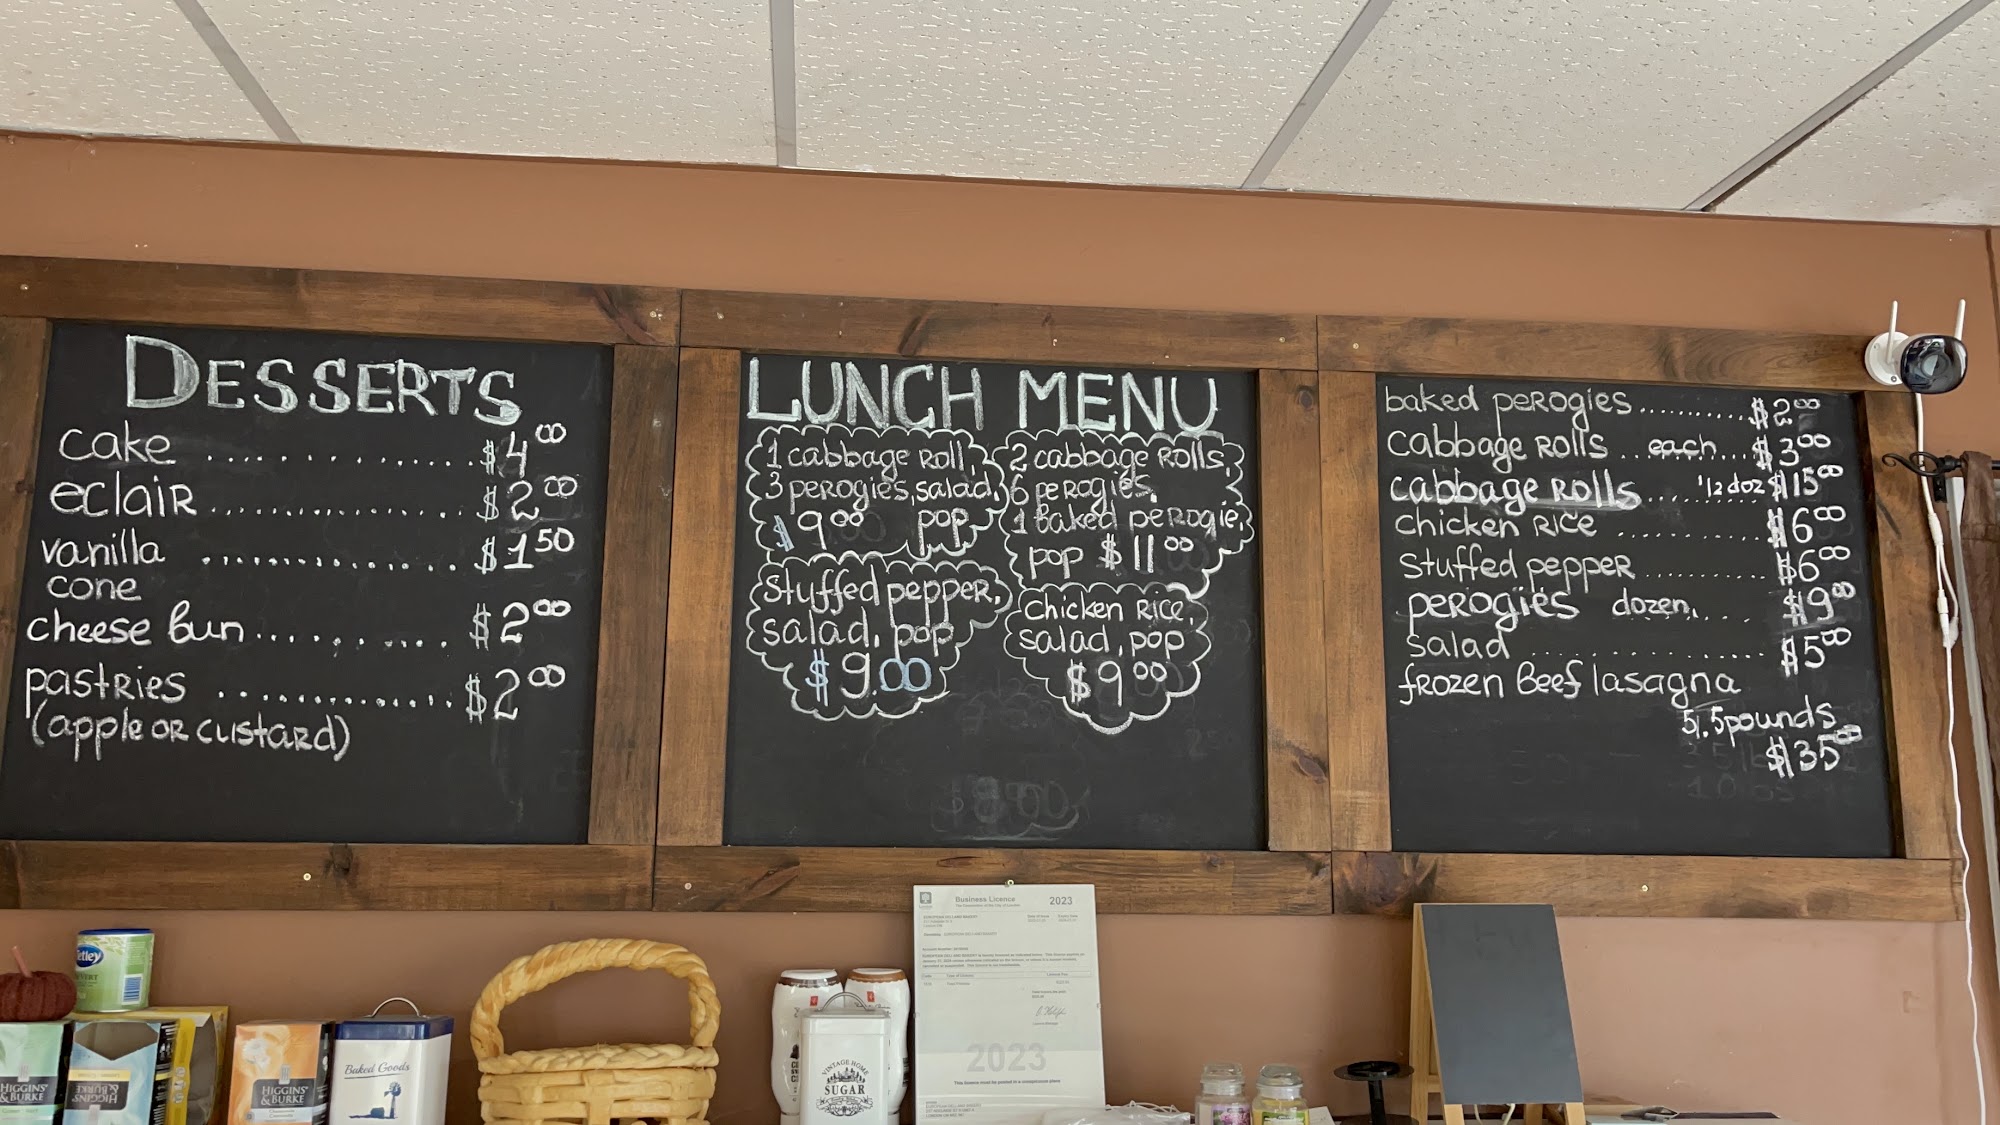 DESSERTS
cake ............... $4.00
eclair ............... $2.00
vanilla ............... $1.50
cone
cheese bun ............ $2.00
pastries ............... $2.00
(apple or custard)
LUNCH MENU
1 cabbage roll,
3 perogies, salad,
$9.00 pop
2 cabbage rolls,
6 perogies,
1 baked perogie,
pop $11.00
stuffed pepper,
salad, pop
$9.00
chicken rice,
salad, pop
$9.00
baked perogies ......... $2.00
cabbage rolls .. each ... $3.00
cabbage rolls .... 1/2 doz $15.00
chicken rice ........... $6.00
stuffed pepper ......... $6.00
perogies dozen, $9.00
salad ............... $5.00
frozen beef lasagna
5.5pounds
$35.00
Business Licence 2023
2023
This licence must be posted in a conspicuous place
Tetley
HIGGINS
& BURKE
HIGGINS
& BURKE
HIGGINS
& BURKE
Baked Goods
VINTAGE HOME
SUGAR